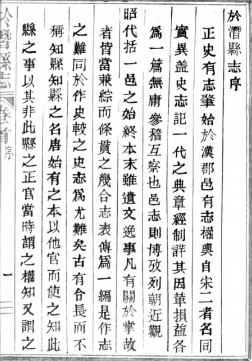 於潛縣志序
正史有志肇始於漢郡邑有志權輿自宋二者名同
實異蓋史志記一代之典章經制詳其因革損益各
爲一篇無庸參稽互察也邑志則博攷列朝近觀
昭代括一邑之始終本末雖遺文逸事凡有關於掌故
者皆當兼綜而條貫之幾合志表傳爲一編是作志
之難同於作史較之史志爲尤難矣古有令長而不
稱知縣知縣之名唐始有之本以他官而使之知此
縣之事以其非此縣之正官當時謂之權知又謂之
於潛縣志
卷首
序
一